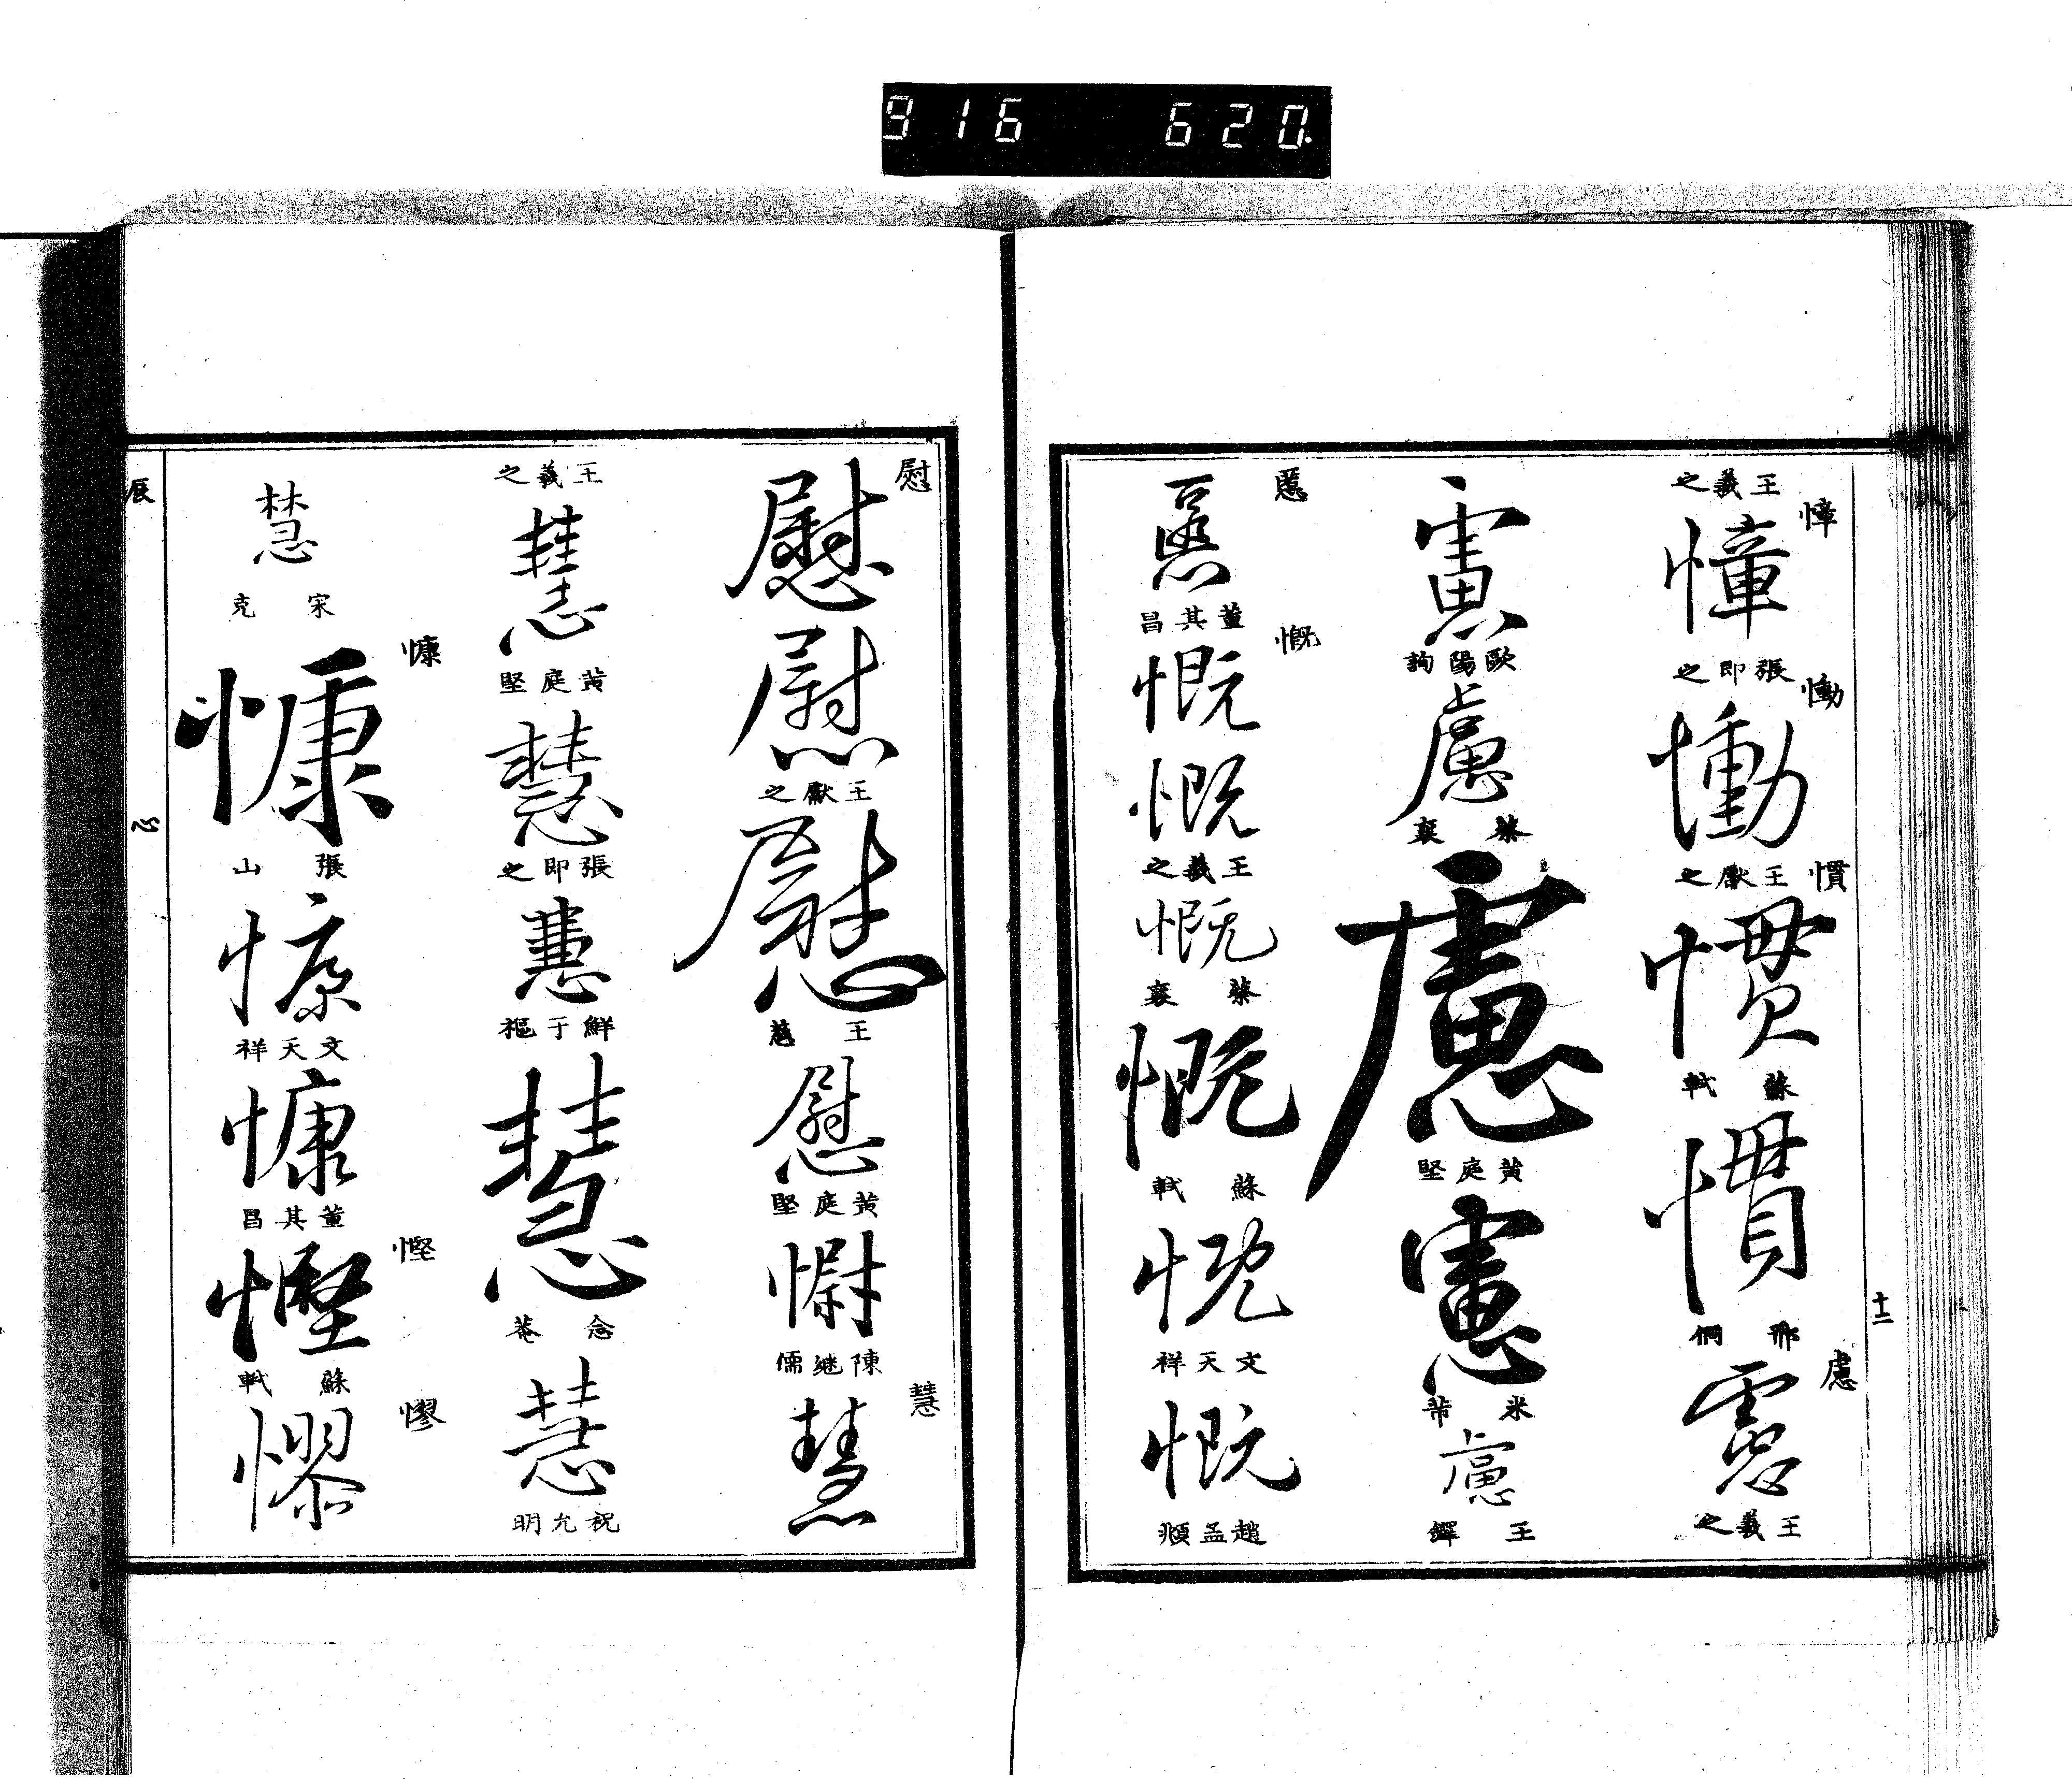 916 620
十二
王羲之
慞
慞
張即之
慟
慟
王獻之
慣
慣
蘇軾
慣
邢侗
慮
慮
王羲之
慮
歐陽詢
慮
蔡襄
慮
黃庭堅
慮
米芾
慮
王鐸
慝
慝
董其昌
慨
慨
慨
王羲之
慨
蔡襄
慨
蘇軾
慨
文天祥
慨
趙孟頫
慰
慰
慰
王獻之
慰
王慈
慰
黃庭堅
慰
陳継儒
慧
慧
王羲之
慧
黃庭堅
慧
張即之
慧
鮮于樞
慧
念菴
慧
祝允明
慧
宋克
慷
慷
張山
慷
文天祥
慷
董其昌
慳
慳
蘇軾
憀
憀
辰